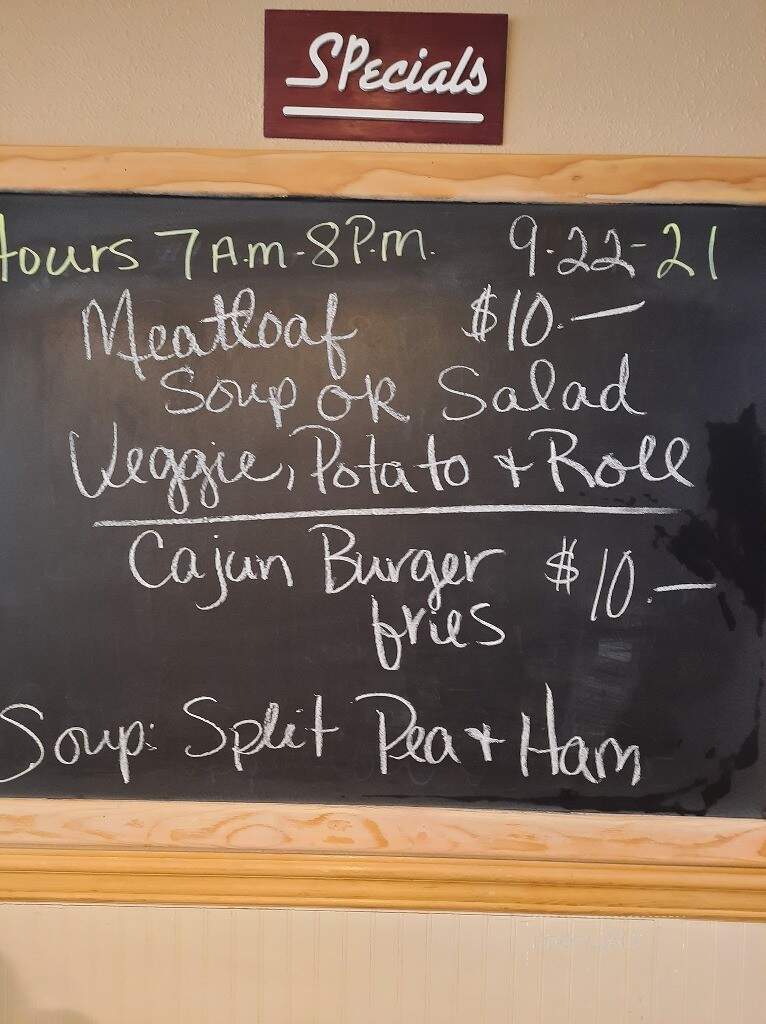 SPecials
Hours 7 A.M.-8 P.M. 9-22-21
Meatloaf $10.—
Soup OR Salad
Veggie, Potato + Roll
Cajun Burger $10.—
fries
Soup: Split Pea + Ham